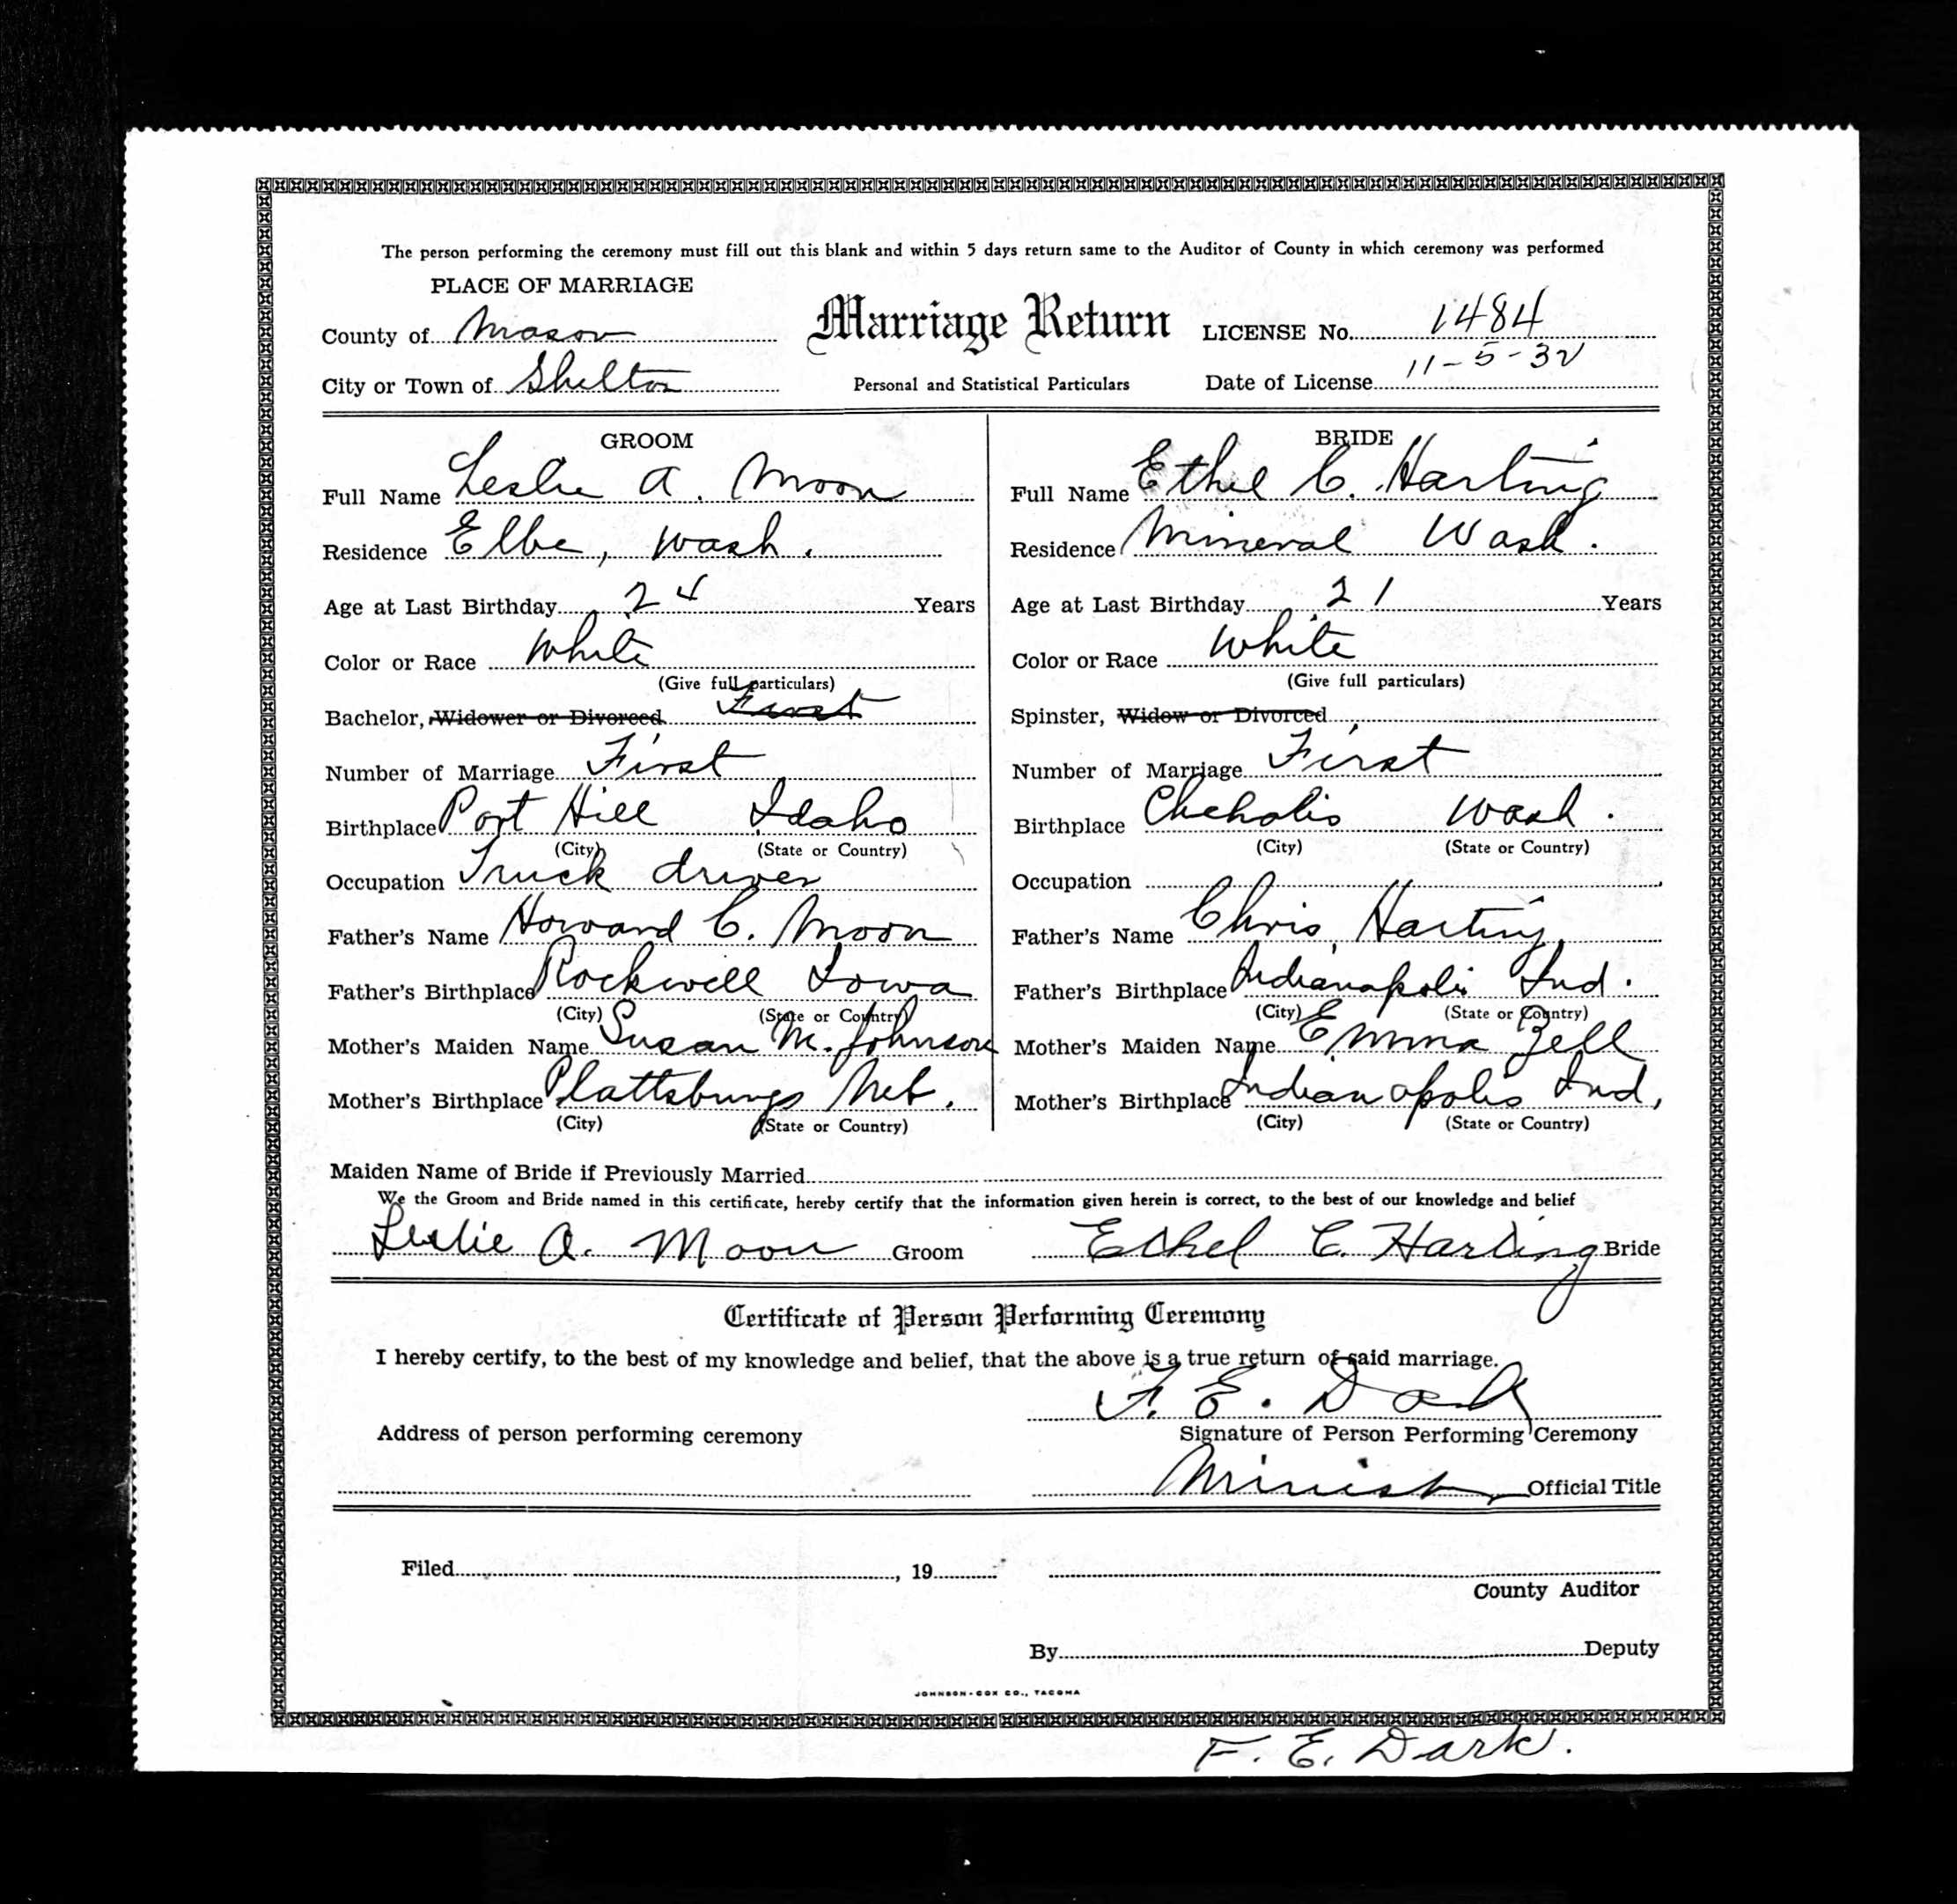 The person performing the ceremony must fill out this blank and within 5 days return same to the Auditor of County in which ceremony was performed
PLACE OF MARRIAGE
County of Mason
City or Town of Shelton
Marriage Return
Personal and Statistical Particulars
LICENSE No. 1484
Date of License 11-5-32
GROOM
Full Name Leslie A. Moon
Residence Elbe, Wash.
Age at Last Birthday 24 Years
Color or Race White
(Give full particulars)
Bachelor, Widower or Divorced First
Number of Marriage First
Birthplace Port Hill Idaho
(City) (State or Country)
Occupation Truck driver
Father's Name Howard C. Moon
Father's Birthplace Rockwell Iowa
(City) (State or Country)
Mother's Maiden Name Susan M. Johnson
Mother's Birthplace Plattsburgs Neb.
(City) (State or Country)
BRIDE
Full Name Ethel C. Harting
Residence Mineral Wash.
Age at Last Birthday 21 Years
Color or Race White
(Give full particulars)
Spinster, Widow or Divorced
Number of Marriage First
Birthplace Chehalis Wash.
(City) (State or Country)
Occupation
Father's Name Chris Harting
Father's Birthplace Indianapolis Ind.
(City) (State or Country)
Mother's Maiden Name Emma Zell
Mother's Birthplace Indianapolis Ind,
(City) (State or Country)
Maiden Name of Bride if Previously Married
We the Groom and Bride named in this certificate, hereby certify that the information given herein is correct, to the best of our knowledge and belief
Leslie A. Moon Groom Ethel C. Harting Bride
Certificate of Person Performing Ceremony
I hereby certify, to the best of my knowledge and belief, that the above is a true return of said marriage.
F. E. Dark
Address of person performing ceremony Signature of Person Performing Ceremony
Minister Official Title
Filed , 19
County Auditor
By Deputy
JOHNSON-COX CO., TACOMA
F. E. Dark.